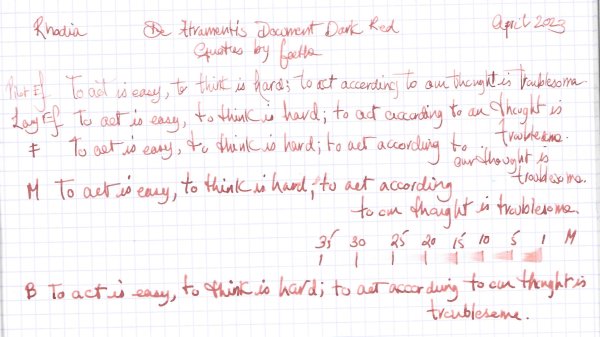 Rhodia De Atramentis Document Dark Red April 2023
Quotes by Goethe
Pilot Ef To act is easy, to think is hard; to act according to our thought is troublesome.
Lamy Ef To act is easy, to think is hard; to act according to our thought is
troublesome.
F To act is easy, to think is hard; to act according to
our thought is
troublesome.
M To act is easy, to think is hard; to act according
to our thought is troublesome.
35 30 25 20 15 10 5 1 M
B To act is easy, to think is hard; to act according to our thought is
troublesome.